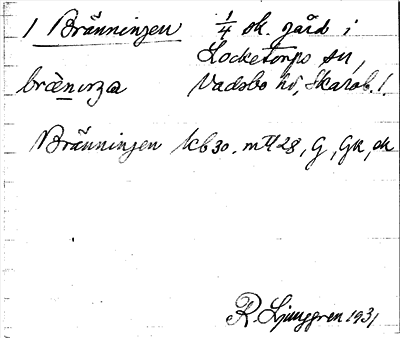 1 Bränningen 1/4 sk. gård i
Locketorps sn,
brænıŋa Vadsbo hd, Skarab. l.
Bränningen kb 30. mtl 28, G, Gk, ek
R. Ljunggren 1931